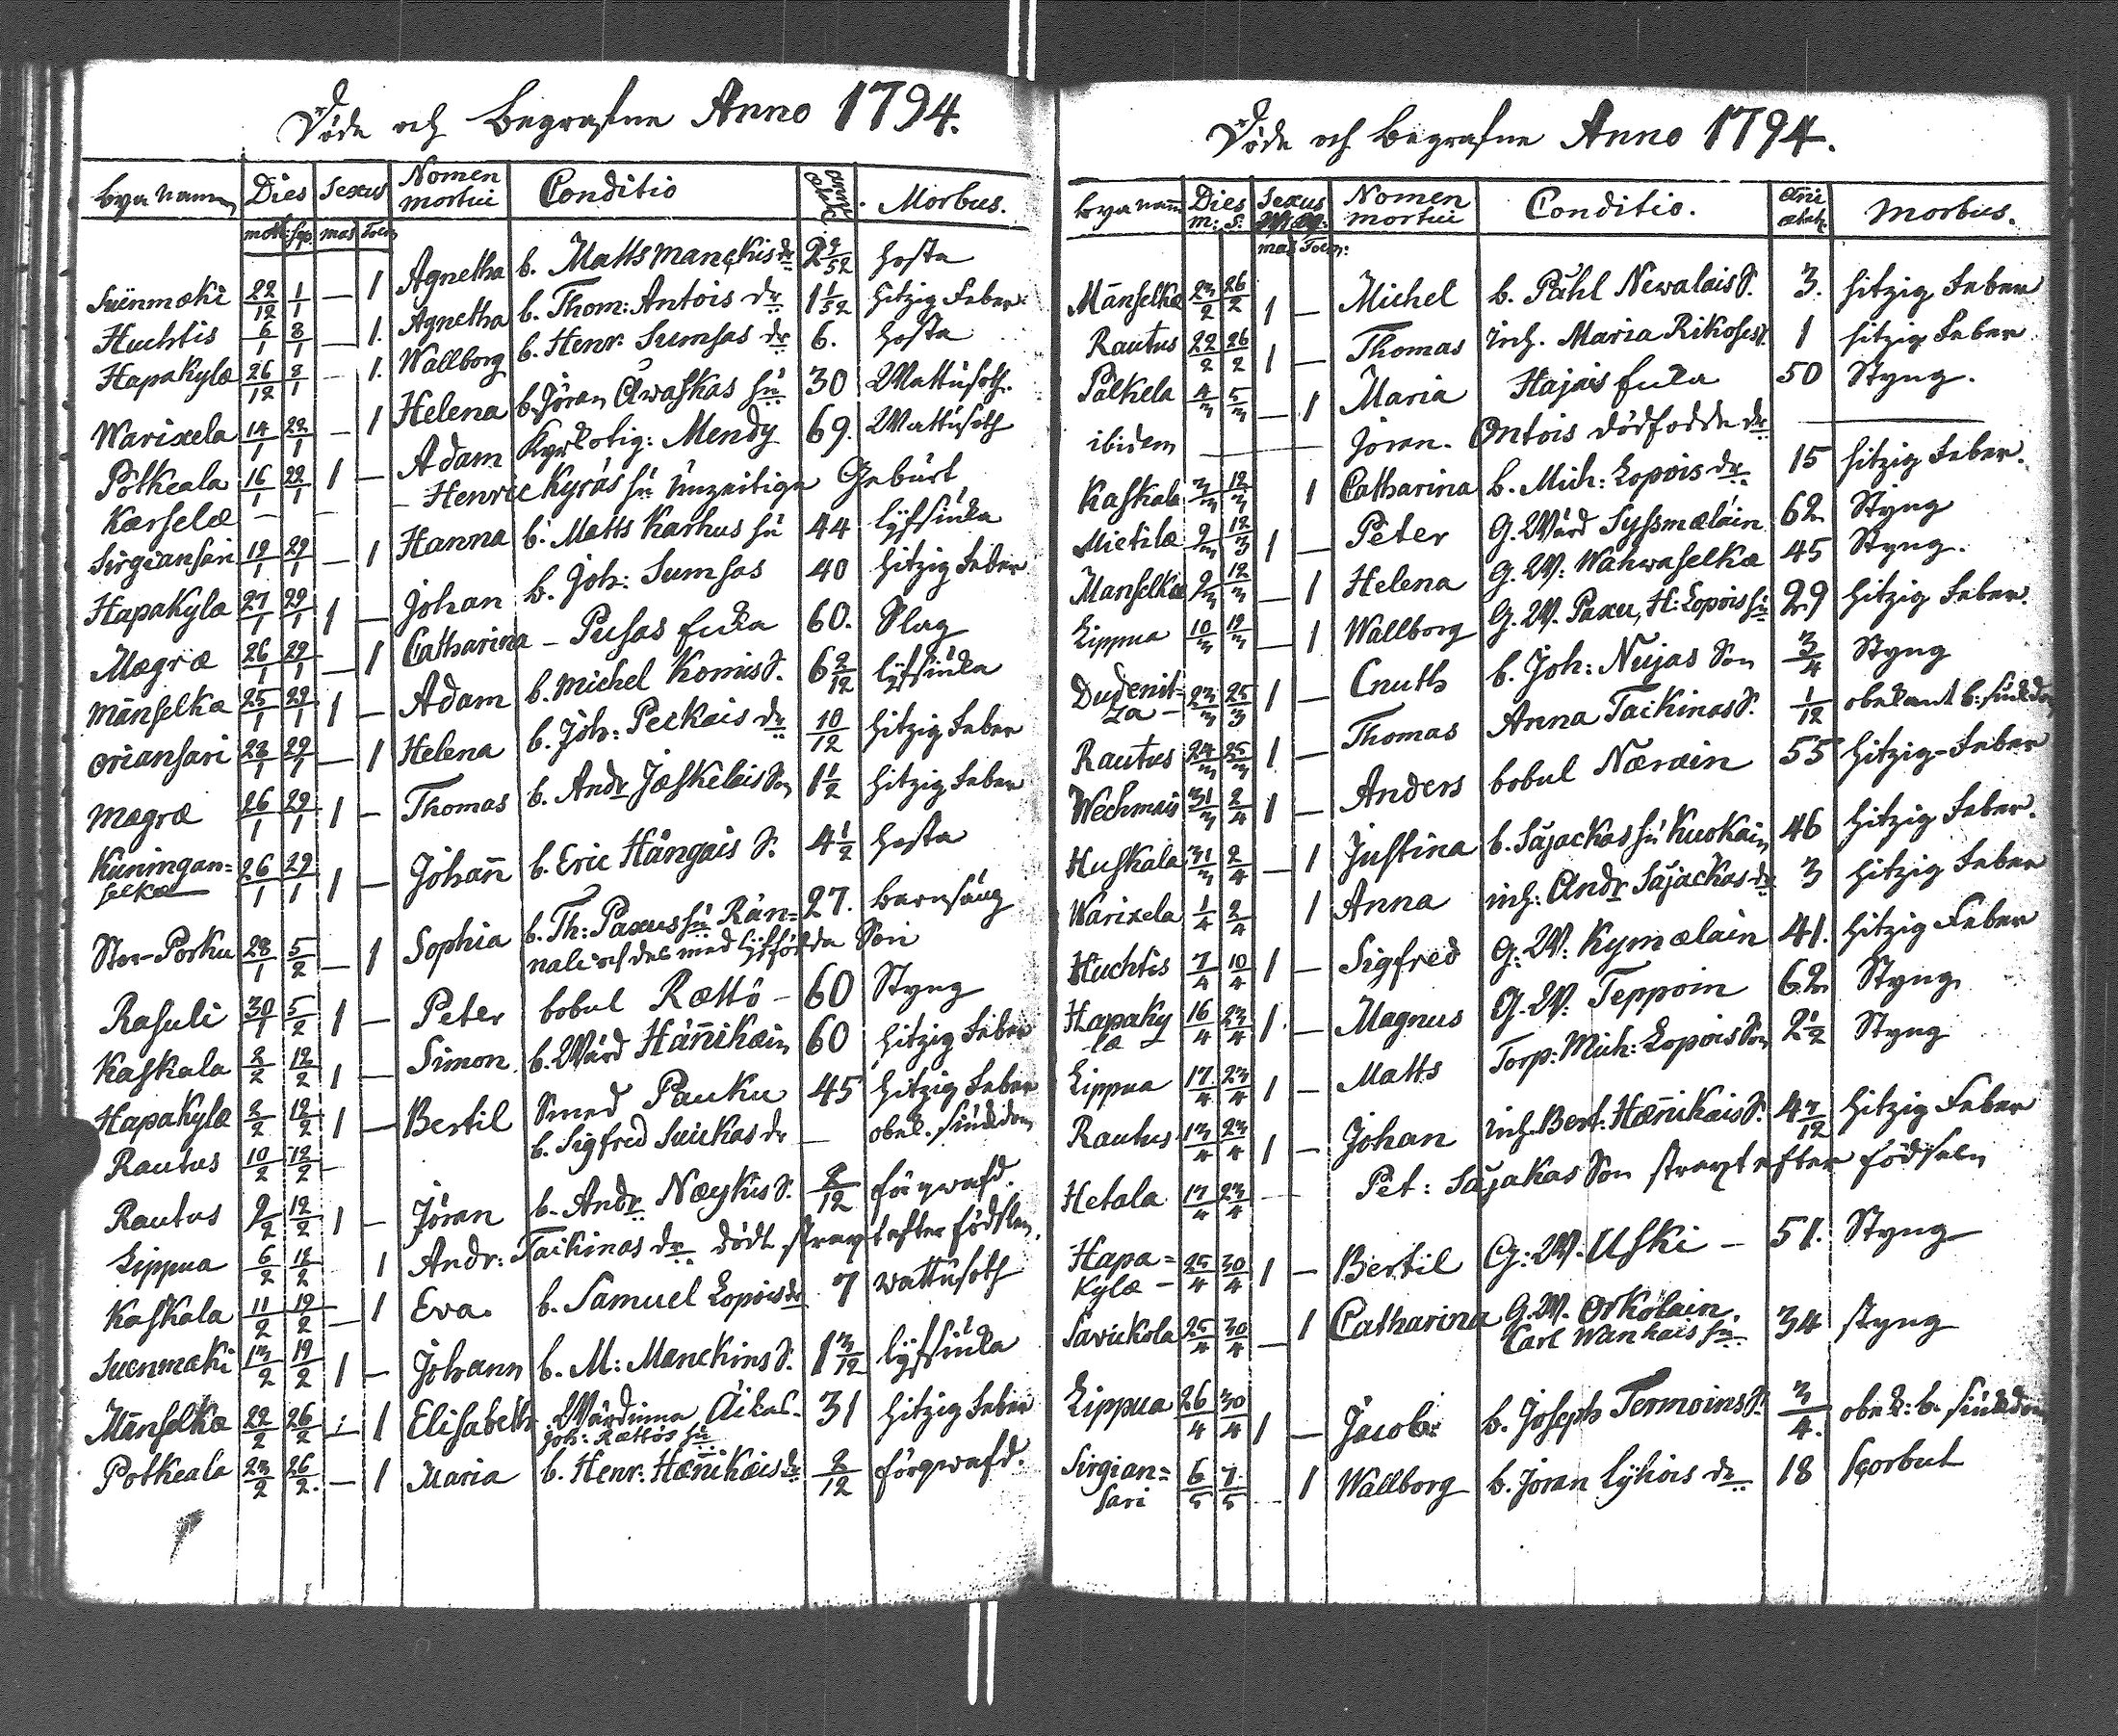 Döde och Begrafne Anno 1794.
Bya Namn Dies Sexus Nomen mortui Conditio anni ætat: Morbus.
mort: sep. mas Foem
Suënmæki 22/12 1/1 — 1 Agnetha b. Matts Manckis dr 2 9/52 hosta
Huchtis 6/1 8/1 — 1. Agnetha b. Thom: Antois dr 1 1/52 hitzig Feber
Hapakylæ 26/12 8/1 — 1. Wallborg b. Henr. Sumsas dr 6. hosta
Warixela 14/1 22/1 — 1 Helena b. Jöran Awaskas hu 30 Wattusoth.
Pötkeala 16/1 22/1 1 — Adam Kyrkotig: Mendy 69. Wattusoth
Kærselæ — — — Henric Kyrös hu unzeitige Geburt
Sirgiansari 19/1 29/1 — 1 Hanna b: Matts Karhus hu 44 lyfsiuka
Hapakylæ 27/1 29/1 1 — Johan b. Joh: Sumsas 40 hitzig Feber
Mægræ 26/1 29/1 — 1 Catharina — Pusas Enka 60. Slag
Mänselkæ 25/1 29/1 1 — Adam b. Michel Komis S. 6 2/12 lyfsiuka
Oriansari 28/1 29/1 — 1 Helena b. Joh: Peckais dr 10/12 hitzig Feber
Mægræ 26/1 29/1 1 — Thomas b. Andr Jæskelais Son 1 1/2 hitzig Feber
Kuningan=
selkæ 26/1 29/1 1 — Johan̄ b. Eric Hångais S. 4 1/2 hosta
Stor-Porku 28/1 5/2 — 1 Sophia b. Th: Paxus hu Rän= 27. barnsäng
nali och des med lyfsödda Son
Rasuli 30/1 5/2 1 — Peter bobul Rættö — 60 Styng
Kaskala 2/2 12/2 1 — Simon b. Wärd Hän̄ikæin 60 hitzig Feber
Hapakylæ 2/2 12/2 1 — Bertil Smed Pauku 45 hitzig Feber
Rautus 10/2 12/2 — b. Sigfred Suickas dr — obek. siukdom
Rautus 9/2 12/2 1 — Jöran b. Andr Næykis S. 2/12 förqwafd.
Lippua 6/2 12/2 1 Andr: Taikinas dr död straxt efter födslen.
Kaskala 11/2 19/2 — 1 Eva. b. Samuel Lopois dr 7 wattusoth
Suenmæki 13/2 19/2 1 — Johann b. M: Manckins S. 1 3/12 lyfsiuka
Mänselkæ 22/2 26/2 — 1 Elisabeth Wärdinna Äikas 31 hitzig Feber
Joh: Rættös hu
Potkeala 23/2 26/2. — 1 Maria b. Henr: Hæn̄ikäis dr 2/12 förqwafd.
Döde och Begrafne Anno 1794.
Bya nam̄ Dies Sexus Nomen mortui Conditio. an̄i ætat: Morbus.
m: S. mas Foem:
Mänselkæ 23/2 26/2 1 — Michel b. Påhl Newalais S. 3. hitzig Feber
Rautus 22/2 26/2 1 — Thomas inh. Maria Rikoses S. 1 hitzig Feber
Palkela 4/3 5/3 — 1 Maria Hajais Enka 50 Styng.
ibidem — — Jöran. Ontois dödfödde dr —
Kaskala 3/3 12/3 1 Catharina b. Mich: Lopois dr 15 hitzig Feber.
Mietilæ 9/3 12/3 1 — Peter G. Wärd Syssmæläin 62 Styng
Mänselkæ 9/3 12/3 — 1 Helena G. W: Wahwaselkæ 45 Styng.
Lippua 10/3 19/3 — 1 Wallborg G. W. Paxu, H: Lopois hu 29 hitzig Feber.
Dudenit=
za — 23/3 25/3 1 — Cnuth b. Joh: Nujas Son 3/4 Styng
Rautus 24/3 25/3 1 — Thomas Anna Taikinas S. 1/12 obekant b: siukdom
Wechmais 31/3 2/4 1 — Anders bobul Næræin 55 hitzig-Feber
Huskala 31/3 2/4 — 1 Justina b. Sajackas hu Kuokain 46 hitzig Feber.
Warixela 1/4 2/4 1 Anna inh: Andr Sajackas dr 3 hitzig Feber
Huchtis 7/4 10/4 1 — Sigfred G: W: Kymælain 41. hitzig Feber
Hapaky
læ 16/4 23/4 1. — Magnus G. W: Teppoin 62 Styng
Lippua 17/4 23/4 1 — Matts Torp: Mich: Lopois Son 2 1/2 Styng
Rautus 13/4 23/4 1 — Johan inh. Bert. Hæn̄ikäis S. 4 7/12 hitzig Feber
Hetala 17/4 23/4 — Pet: Sajakas Son straxt efter födseln
Hapa=
kylæ — 25/4 30/4 1 — Bertil G: W. Uski — 51. Styng
Savikola 25/4 30/4 — 1 Catharina G. W. Orkolain 34 styng
Carl Wanhais hu
Lippua 26/4 30/4 1 — Jacob: b. Joseph Termoins S. 3/4. obek: b. siukdom
Sirgian=
sari 6/5 7/5 1 Wallborg b. Jöran Lyhois dr 18 scorbut